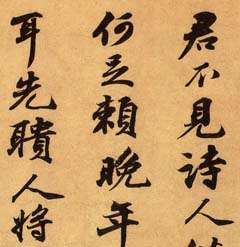 君不見詩人
何足賴晚年
耳先聵人將